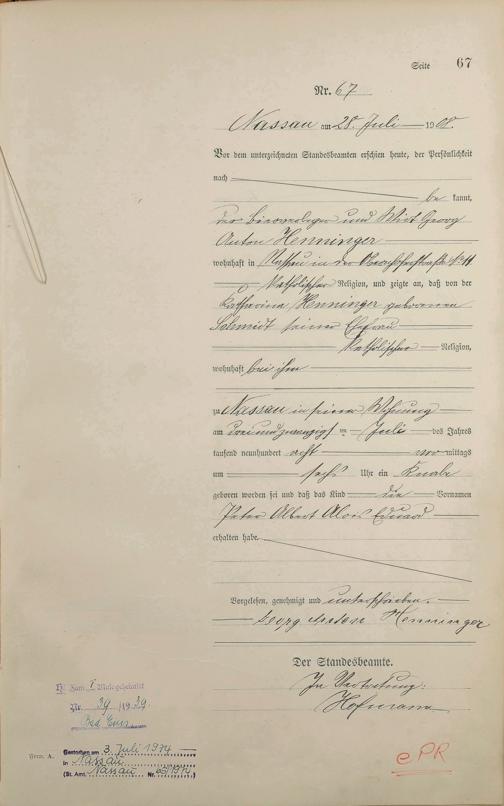 Seite 67
Nr. 67
Nassau am 28. Juli 1908.
Vor dem unterzeichneten Standesbeamten erschien heute, der Persönlichkeit
nach
be kannt,
der Bierverleger und Wirt Georg
Anton Henninger
wohnhaft in Nassau in der
katholischer Religion, und zeigte an, daß von der
Katharina Henninger geborenen
Schmidt seiner Ehefrau
katholischer Religion,
wohnhaft bei ihm
zu Nassau in seiner Wohnung
am dreiundzwanzigsten Juli des Jahres
tausend neunhundert acht vor mittags
um sechs Uhr ein Knabe
geboren worden sei und daß das Kind die Vornamen
Peter Albert Alois Eduard
erhalten habe.
Vorgelesen, genehmigt und unterschrieben.
Georg Anton Henninger
Der Standesbeamte.
In Vertretung:
Hofmann
Nr. 39/1939
Bad Ems
Form. A.
Gestorben am 3. Juli 1974
in Nassau
(St. Amt. Nassau Nr. /1974)
ePR